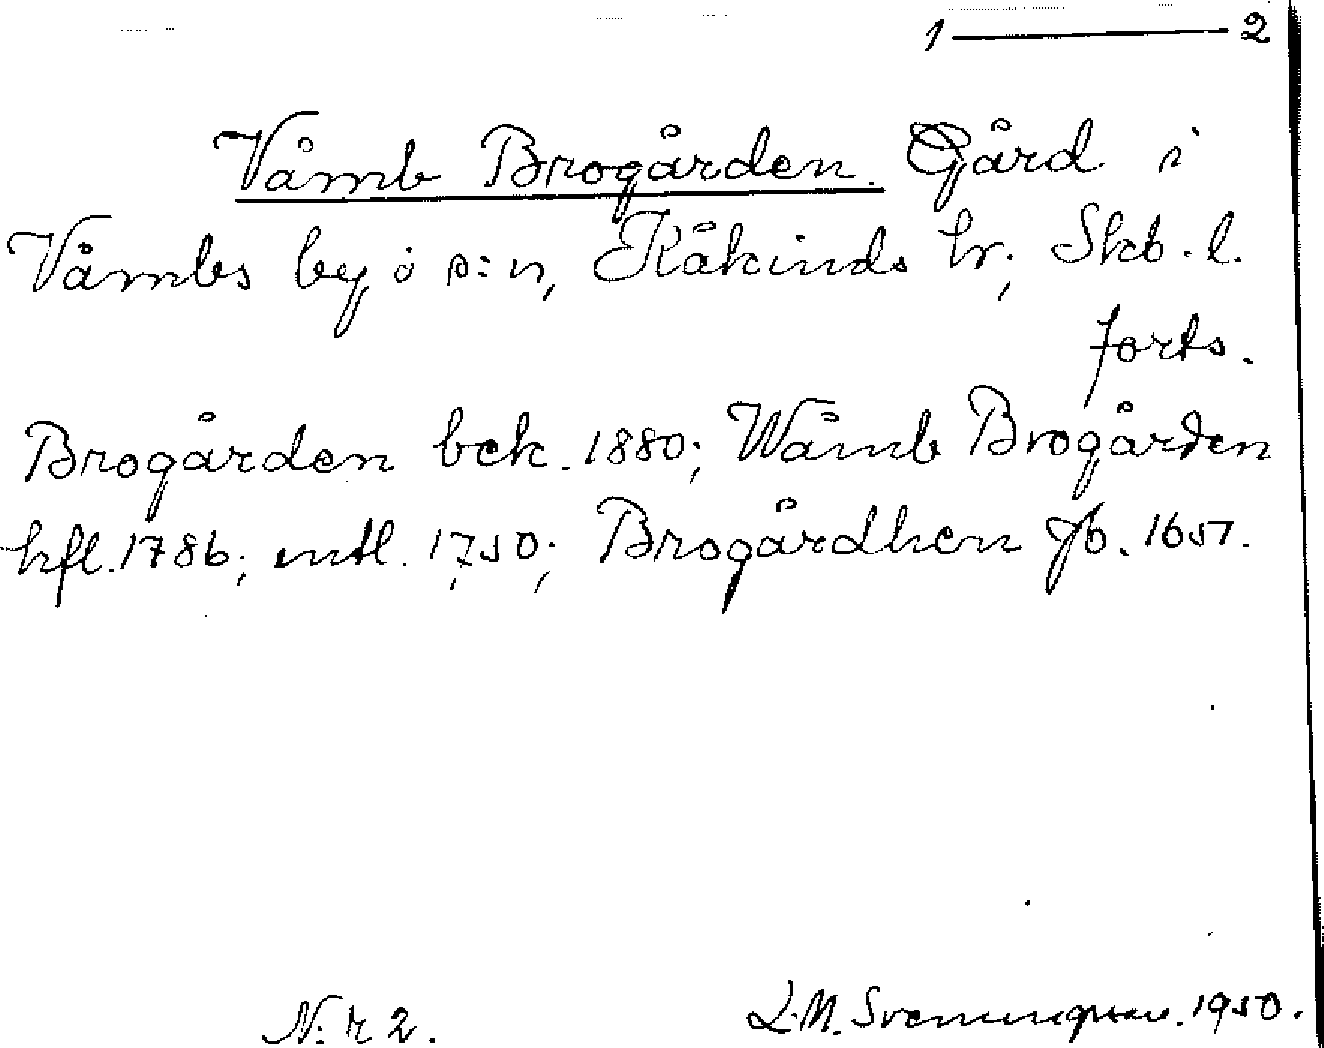 1 — 2
Våmb Brogården. Gård i
Våmbs by i s:n, Kåkinds hr; Skb. l.
forts.
Brogården bek. 1880; Wåmb Brogården
hfl. 1786; mtl. 1750; Brogårdhen Jb. 1651.
N:r 2.
L.M. Svenungsson. 1950.